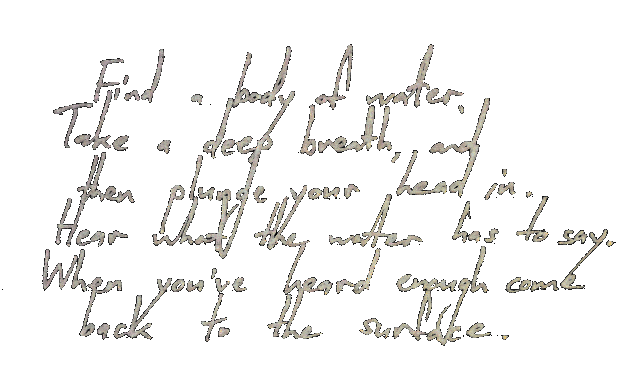 Find a body of water.
Take a deep breath, and
then plunge your head in.
Hear what the water has to say.
When you've heard enough come
back to the surface.